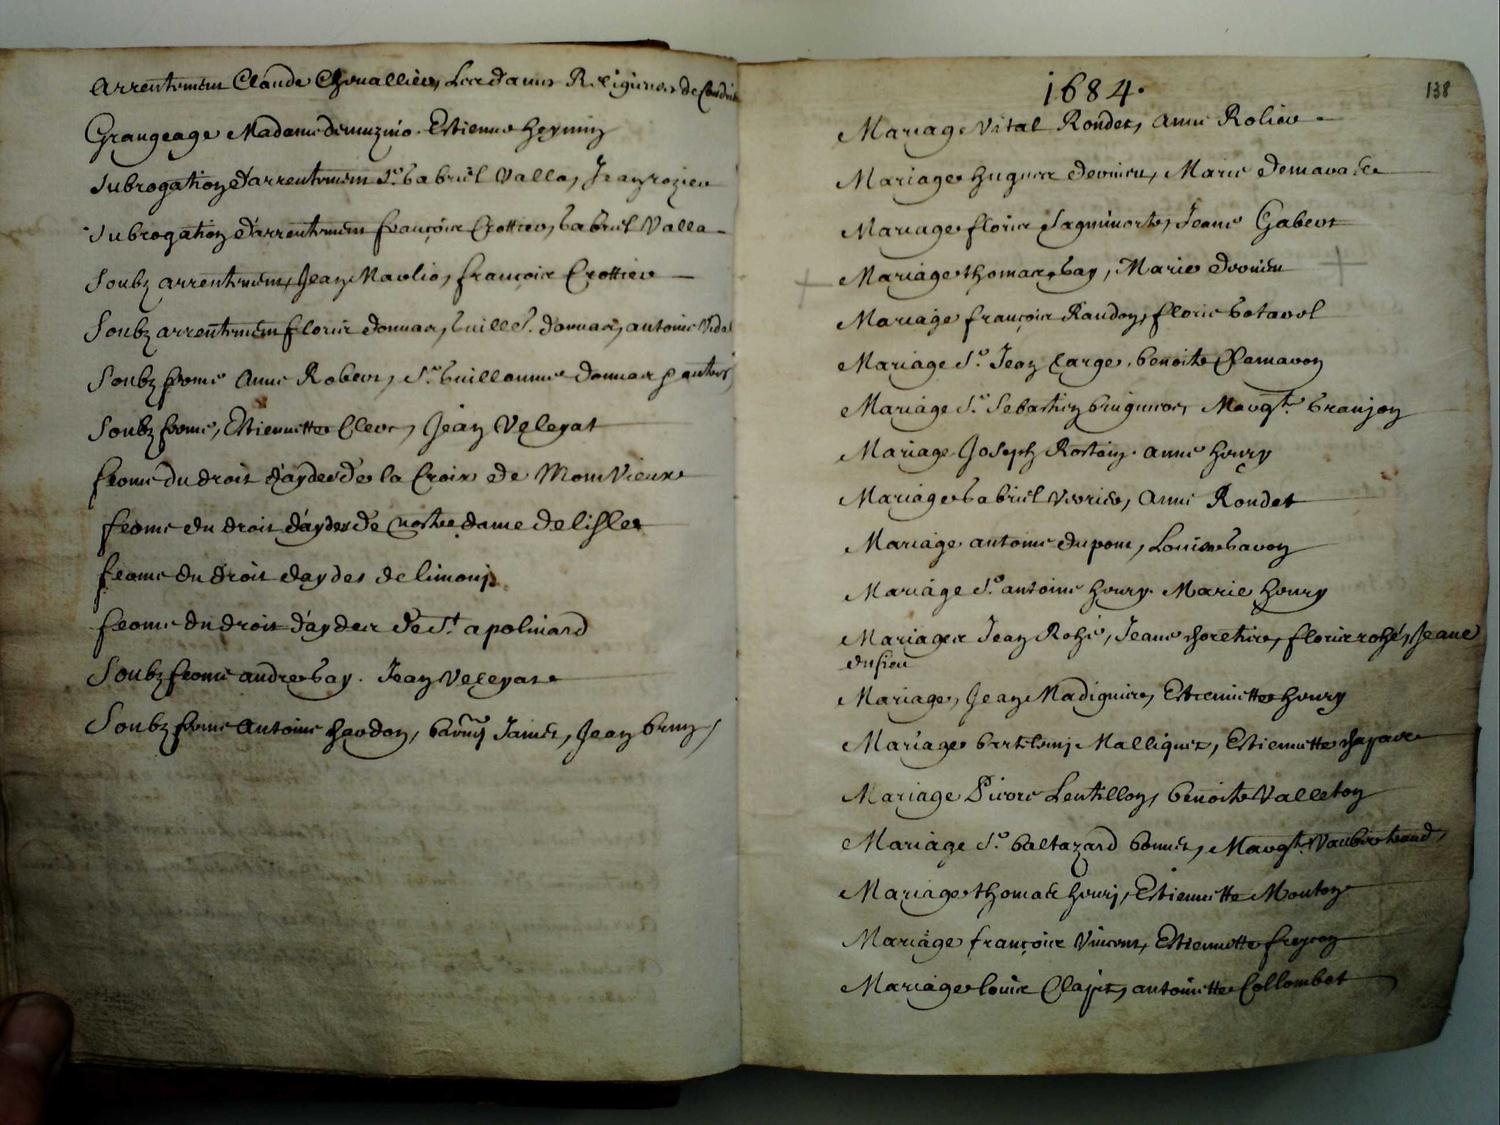 Arrentement Claude Chevallier, Les dames Religieuses de Condrieu
Grangeage Madame Estienne heymin
Subrogation d'arrentement Sr. Gabriel Valla, Jean rozier
Subrogation d'arrentement françois Crottier, Gabriel Valla
Soubz arrentement, Jean Maslio, françois Crottier
Soubz arrentement florir donnas, Guille. donnas, antoine Vidal
Soubz ferme Anne Robert, Sr. Guillaume donnas
Soubz ferme, Estiennette Clerc, Jean Veleyat
ferme du droit d'aydes de la Croix de Montvieux
ferme du droit d'aydes de nostre dame de lisle
ferme du droit d'aydes de limony
ferme du droit d'aydes de St apolinard
Soubz ferme andre bay. Jean Veleyat
Soubz ferme Antoine hardon, James, Jean brun
1684.
138
Mariage Vital Rondet, Anne Rolier
Mariage hugues dervieu, Marie
Mariage floris Jeane Gabert
Mariage thomas bay, Marie drevieu
Mariage françois Raudon, floric botavol
Mariage Sr. Jean Large, benoite Chamavon
Mariage Sr. Sebastien Margte. Granjon
Mariage Joseph Rostain. anne houry
Mariage Gabriel Verrier, Anne Rondet
Mariage antoine dupont, Louise bavon
Mariage Sr. antoine houry. Marie houry
Mariages Jean Rohé, Jeane floris rohé, Jeane
dusieu
Mariage, Jean Madignier, Estiennette houry
Mariage bartelemy Malliquet, Estiennette chapave
Mariage Pierre Lentillon, benoite Valleton
Mariage Sr. baltazard bonnet, Margte. Vaubertrand
Mariage thomas houry, Estiennette Monton
Mariage françois Vincent, Estiennette freycon
Mariage louis Clapit, antoinette Collombet